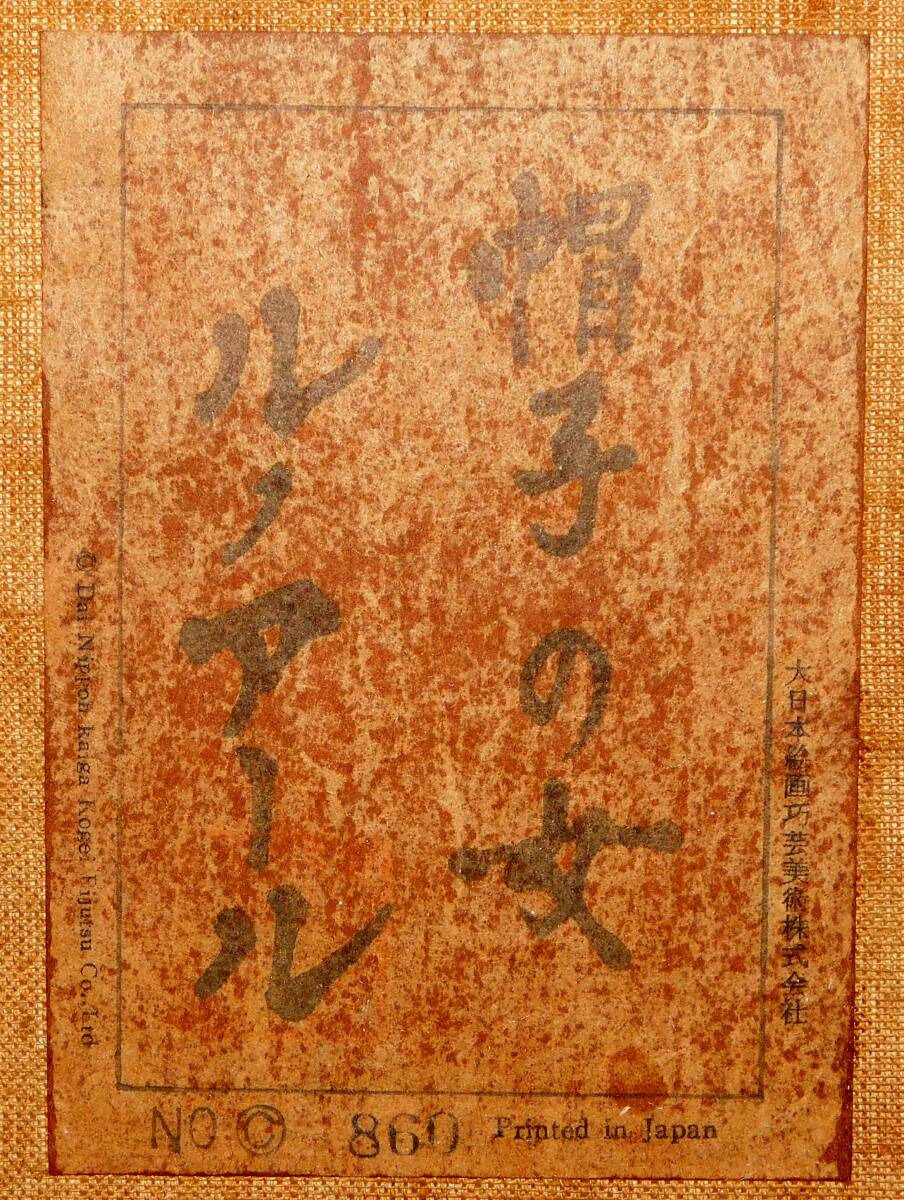 帽子の女
ルノアール
大日本絵画巧芸美術株式会社
© Dai Nippon Kaga Kogei Bijutsu Co., Ltd
NO © 860 Printed in Japan